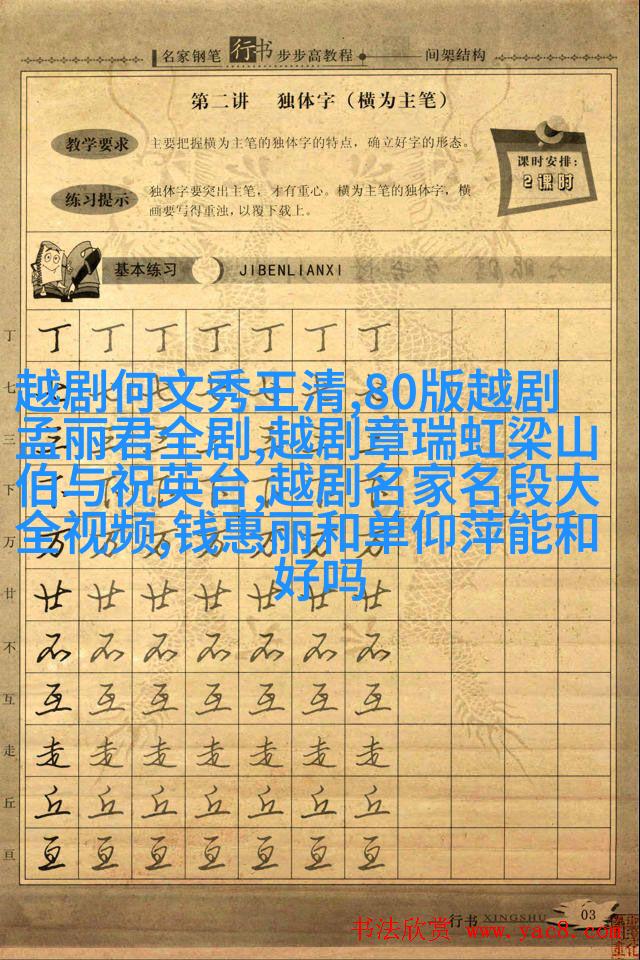 名家钢笔 行书 步步高教程 间架结构
第二讲 独体字（横为主笔）
教学要求 主要把握横为主笔的独体字的特点，确立好字的形态。
课时安排：
2课时
练习提示 独体字要突出主笔，才有重心。横为主笔的独体字，横
画要写得重浊，以覆下载上。
基本练习 JIBENLIANXI
丁 丁 丁 丁 丁 丁 丁 丁
七
越剧何文秀王清,80版越剧
孟丽君全剧,越剧章瑞虹梁山
伯与祝英台,越剧名家名段大
全视频,钱惠丽和单仰萍能和
好吗
三
下
万 万 万 万 万 万 万 万
廿 廿 廿 廿 廿 廿 廿 廿
不 不 不 不 不 不 不 不
互 互 互 互 互 互 互 互
走 走 走 走 走 走 走 走
丘 丘 丘 丘 丘 丘 丘 丘
亘 亘 亘 亘 亘 亘 亘 亘
行书 XINGSHU 03
书法欣赏 www.yac8.com